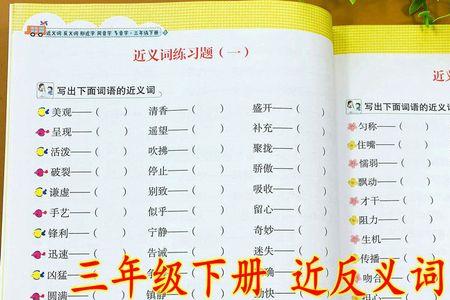 近义词 反义词 形近字 同音字 多音字·三年级下册
近义词练习题（一）
写出下面词语的近义词
美观——（ ） 清香——（ ） 盛开——（ ）
呈现——（ ） 遥望——（ ） 补充——（ ）
活泼——（ ） 吹拂——（ ） 聚拢——（ ）
破裂——（ ） 停止——（ ） 骄傲——（ ）
谦虚——（ ） 别致——（ ） 吸收——（ ）
手艺——（ ） 似乎——（ ） 留心——（ ）
锋利——（ ） 宁静——（ ） 奇妙——（ ）
迅速——（ ） 告诫—— 迷失——（
凶猛——
圆满—— 镇静——
写出下面词语的近
匀称——（ ）
住嘴——（ ）
懦弱——（ ）
飘动——（ ）
才干——（ ）
阻力——（ ）
生机——（ ）
传播
吻合
三年级下册 近反义词